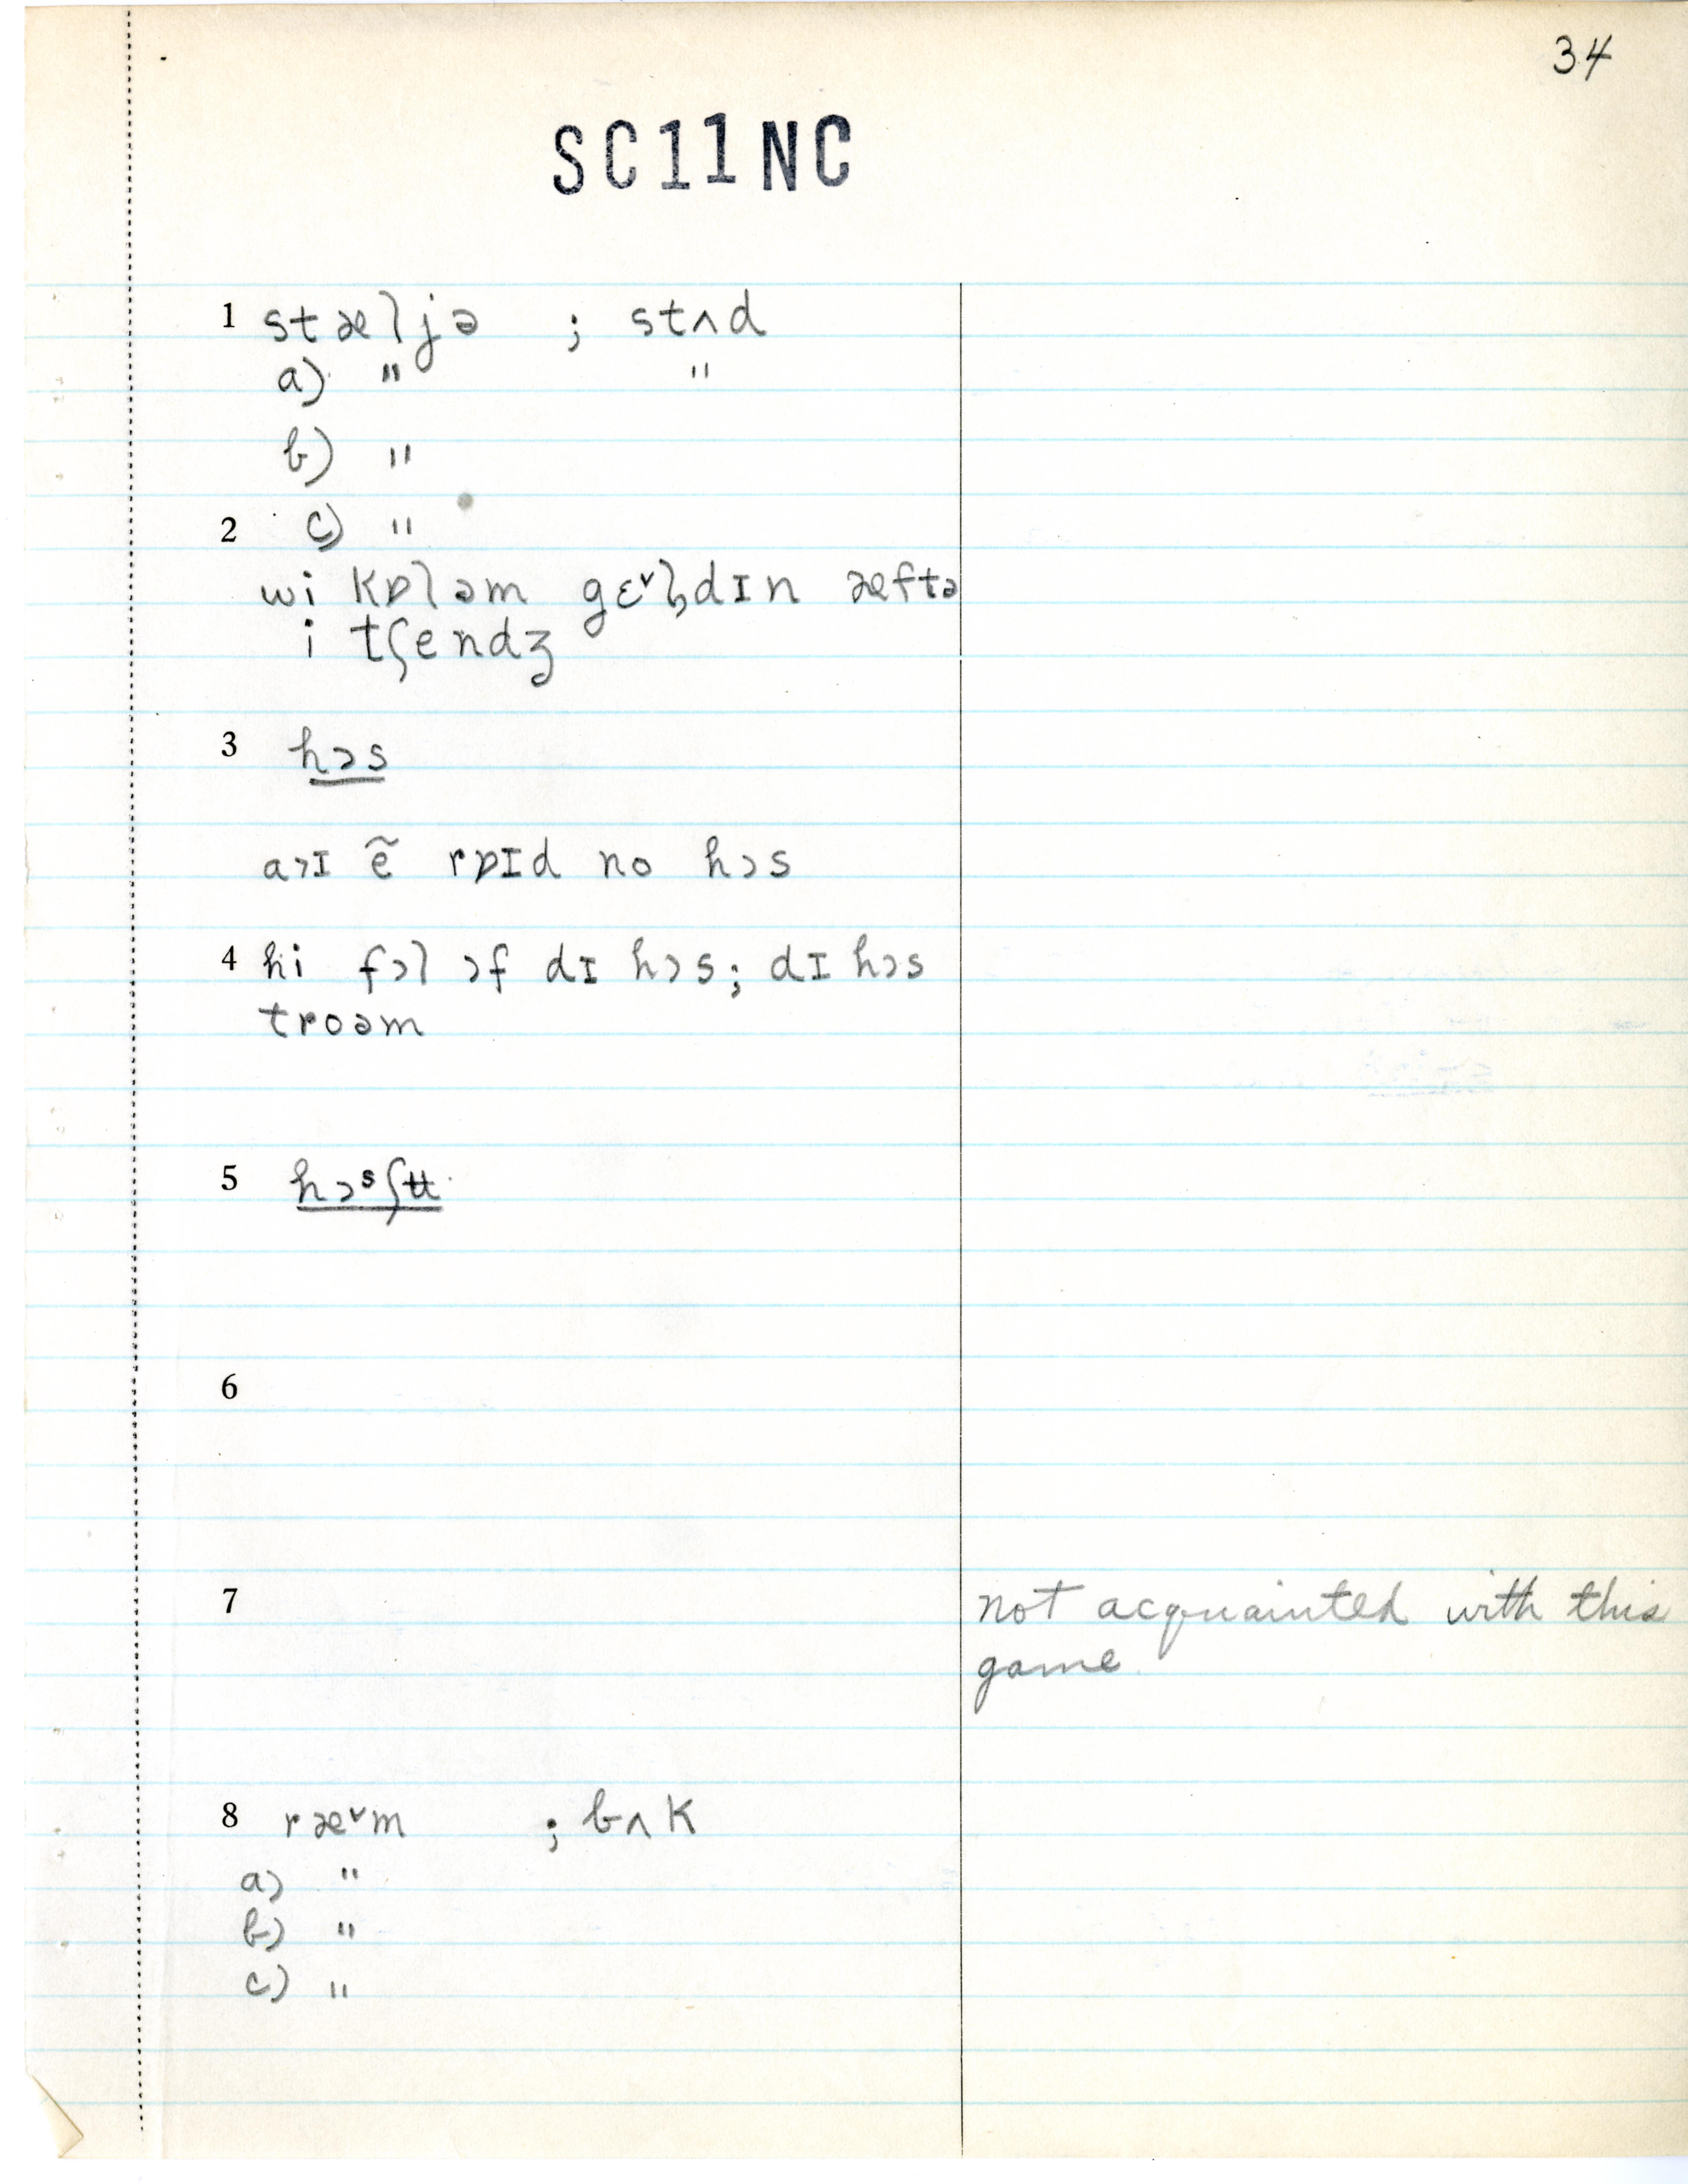 34
SC11NC
1 stæljə ; stʌd
a) " "
b) "
2 c) "
wi kɒləm gɛ˅ldɪn æftə
i tʃendʒ
3 hɔs
aɔɪ ẽ rɒɪd no hɔs
4 hi fɔl ɔf dɪ hɔs; dɪ hɔs
troəm
5 hɔˢʃʉ
6
7 not acquainted with this
game
8 ræ˅m ; bʌk
a) "
b) "
c) "